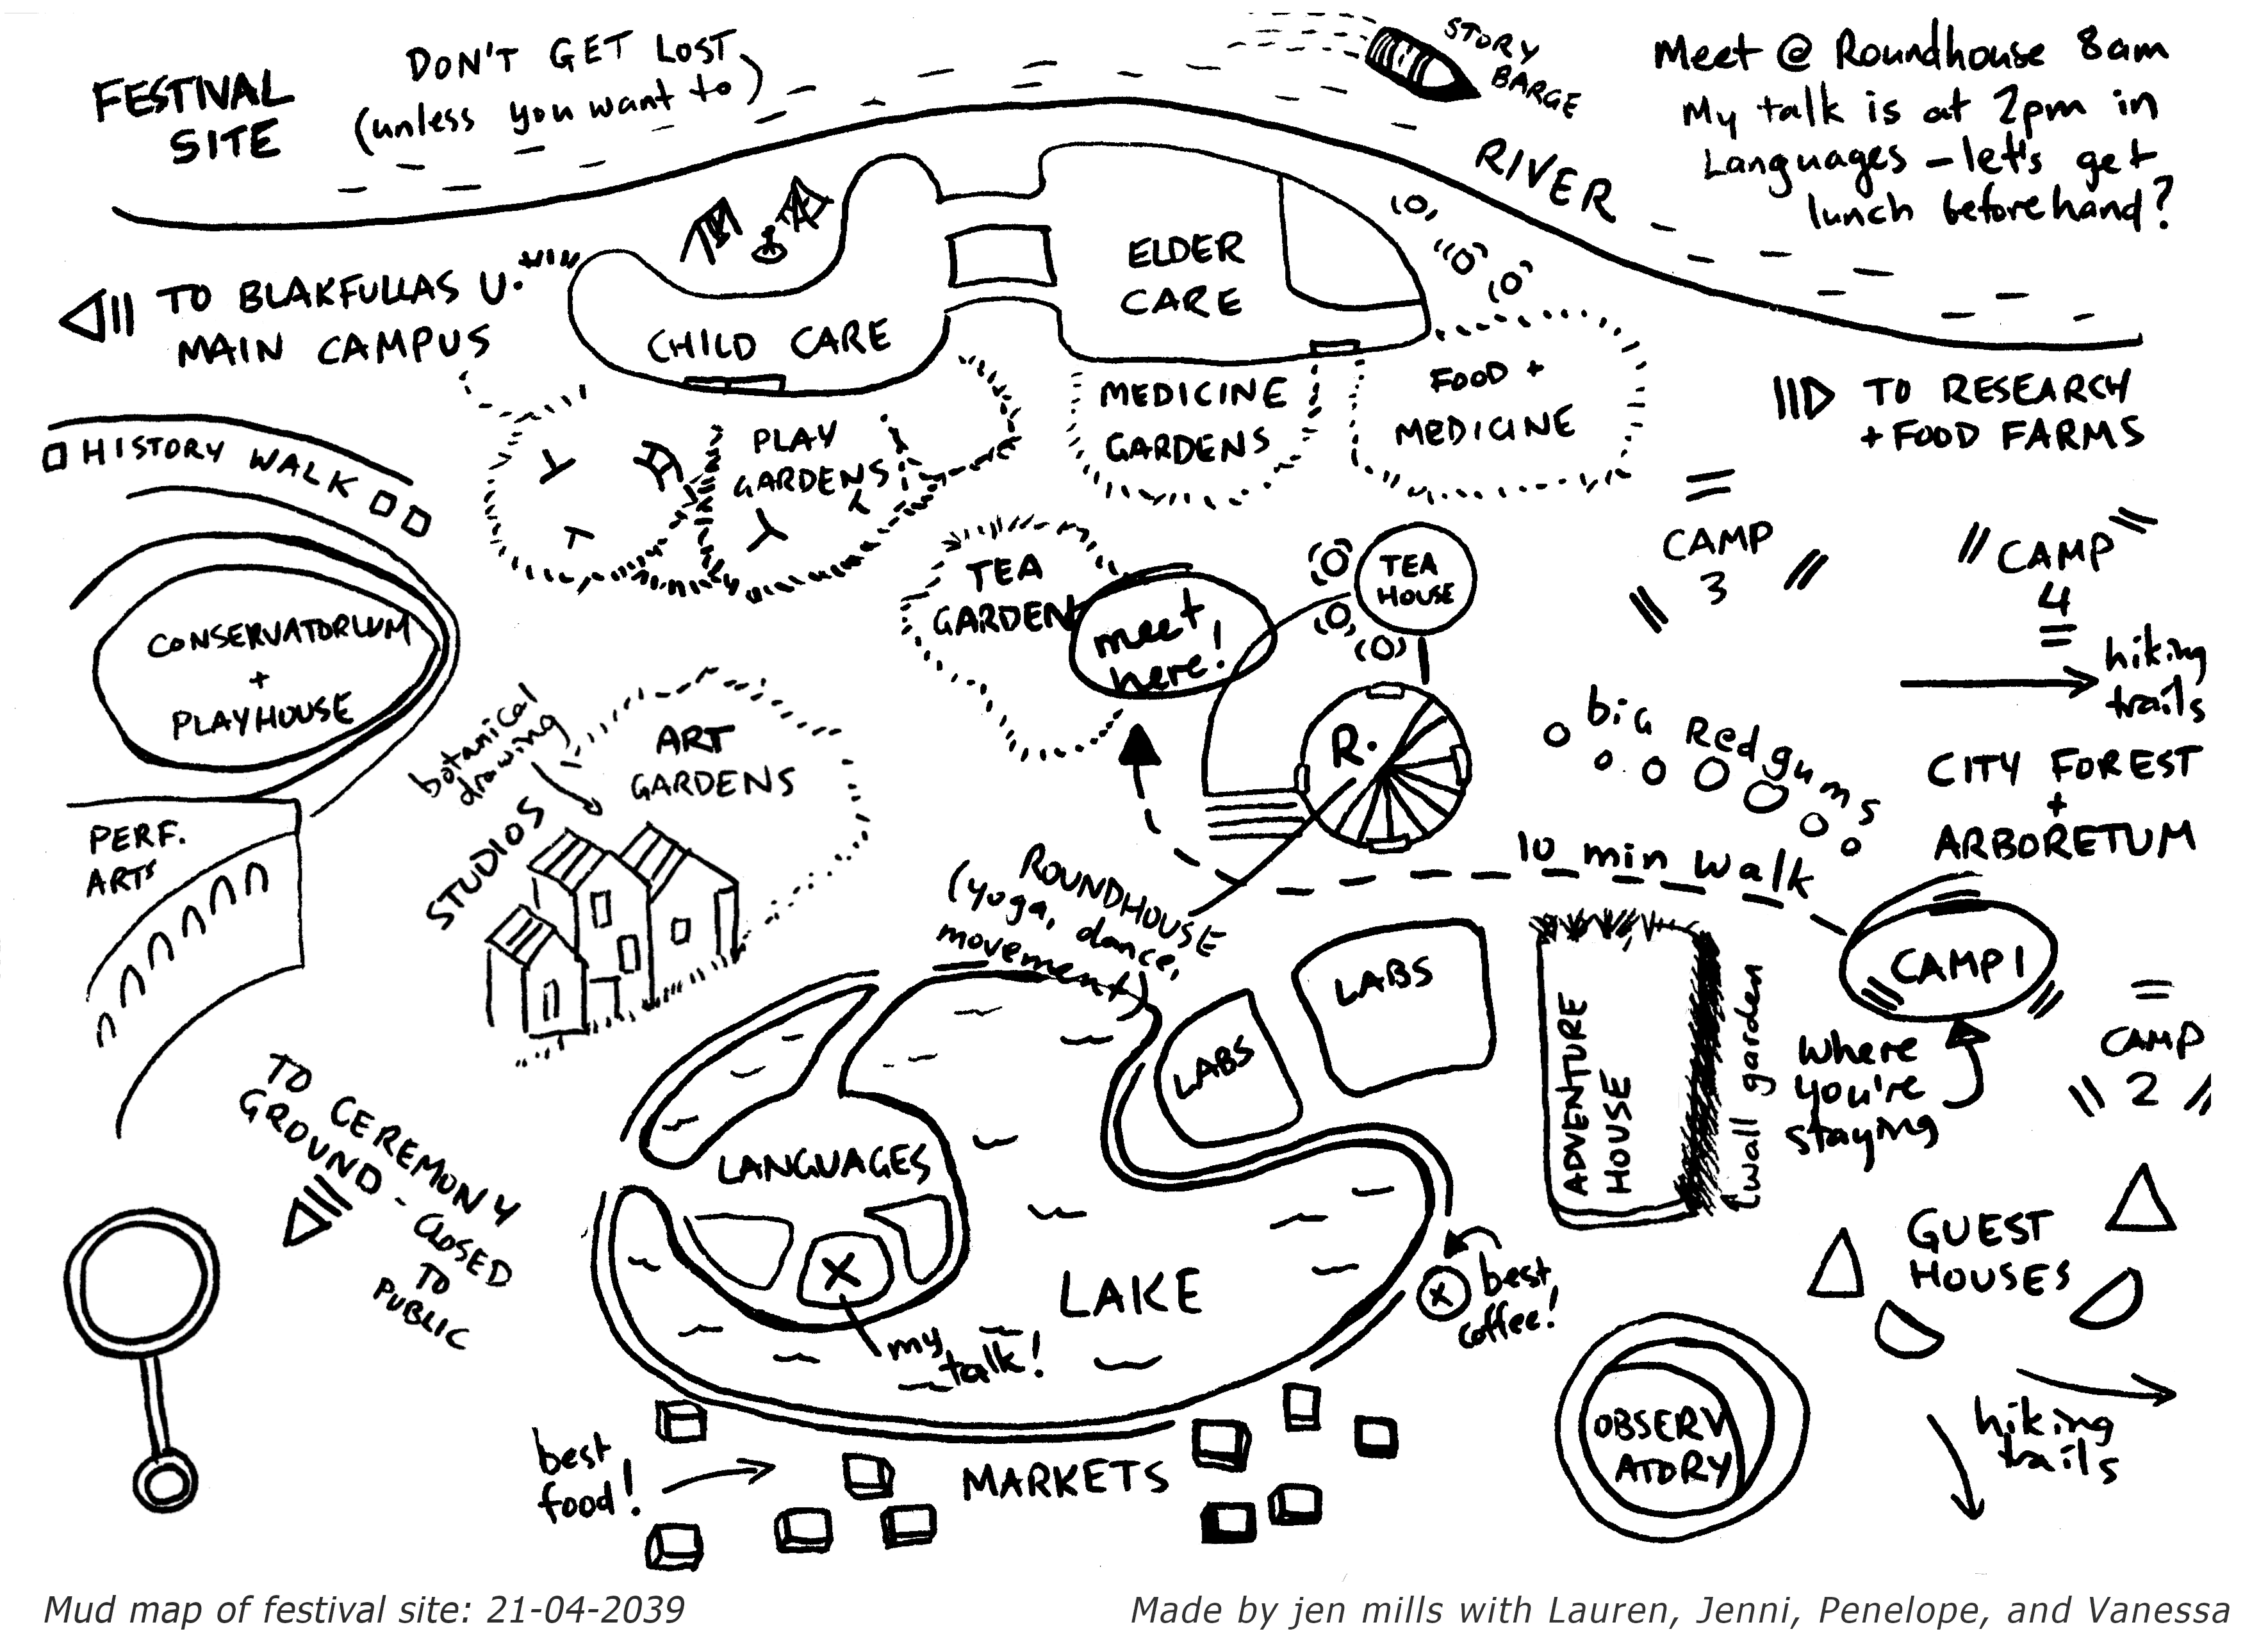 FESTIVAL
SITE
DON'T GET LOST
(unless you want to)
STORY
BARGE
RIVER
Meet @ Roundhouse 8am
My talk is at 2pm in
Languages – let's get
lunch beforehand?
TO BLAKFULLAS U.
MAIN CAMPUS
CHILD CARE
ELDER
CARE
HISTORY WALK
PLAY
GARDENS
MEDICINE
GARDENS
FOOD +
MEDICINE
TO RESEARCH
+ FOOD FARMS
CAMP
3
CAMP
4
hiking
trails
CONSERVATORIUM
+
PLAYHOUSE
TEA
GARDEN
meet
here!
TEA
HOUSE
botanical
drawing
ART
GARDENS
STUDIOS
R.
big Red gums
CITY FOREST
+
ARBORETUM
PERF.
ARTS
ROUNDHOUSE
(yoga, dance,
movement)
10 min walk
CAMP 1
where
you're
staying
CAMP
2
LABS
LABS
ADVENTURE
HOUSE
wall garden
TO CEREMONY
GROUND - CLOSED
TO
PUBLIC
LANGUAGES
X
my
talk!
LAKE
X
best
coffee!
GUEST
HOUSES
best
food!
MARKETS
OBSERV
ATORY
hiking
trails
Mud map of festival site: 21-04-2039
Made by jen mills with Lauren, Jenni, Penelope, and Vanessa